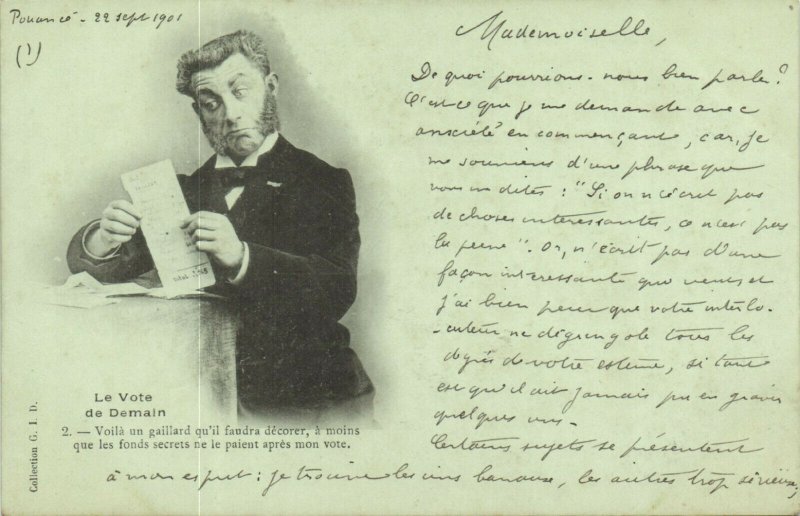 Pouancé - 22 sept 1901
(1)
Mademoiselle,
De quoi pourrions-nous bien parler?
C'est ce que je me demande avec
anxciété en commençant, car, je
me souviens d'une phrase que
vous m dites : "Si on n'écrit pas
de choses intéressantes, ce n'est pas
la peine". Or, n'écrit pas d'une
façon intéressante qui veut et
j'ai bien peur que votre interlo-
-cuteur ne dégringole tous les
degrés de votre estime, si tant
est qu'il ait jamais pu en gravir
quelques uns.
Certains sujets se présentent
à mon esprit : je trouve les uns banaux, les autres trop sérieux,
Le Vote
de Demain
2. — Voilà un gaillard qu'il faudra décorer, à moins
que les fonds secrets ne le paient après mon vote.
Collection G. I. D.